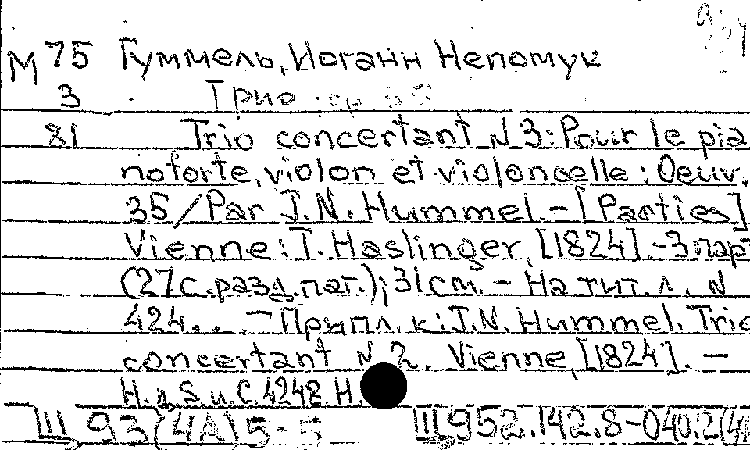 М 75 Гуммель, Иоганн Непомук
3 Трио
81 Trio concertant N 3: Pour le pia
noforte, violon et violoncelle: Oeuv.
35/Par J.N. Hummel. - [Parties]
Vienne: T. Haslinger, [1824]. - 3 парт
(27 с. разд. паг.); 31 см. - На тит. л. N
424... - Припл. к: J.N. Hummel. Trio
concertant N 2. Vienne, [1824]. -
H. u. S. u. C. 4248. H.
III 93(4А)5-5 III 952.142.8-040.2(4А